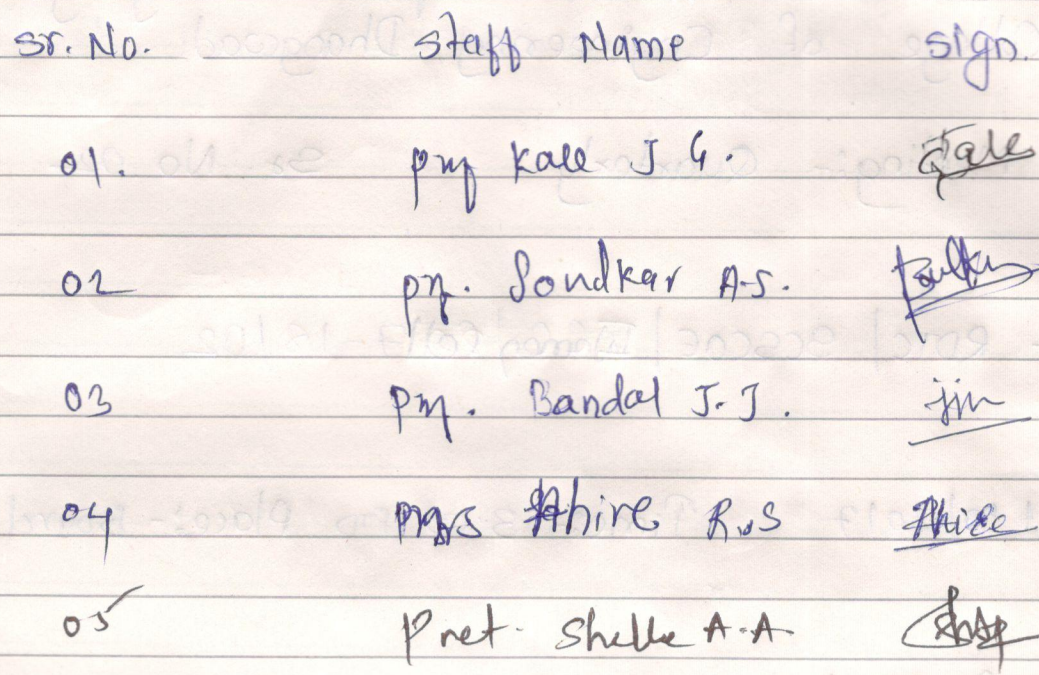 Sr. No. Staff Name Sign.
01. Prof Kale J G. Kale
02 Prof. Sondkar A.S.
03 Prof. Bandal J.J.
04 Ahire R.S Ahire
05 Prof. Shelke A.A